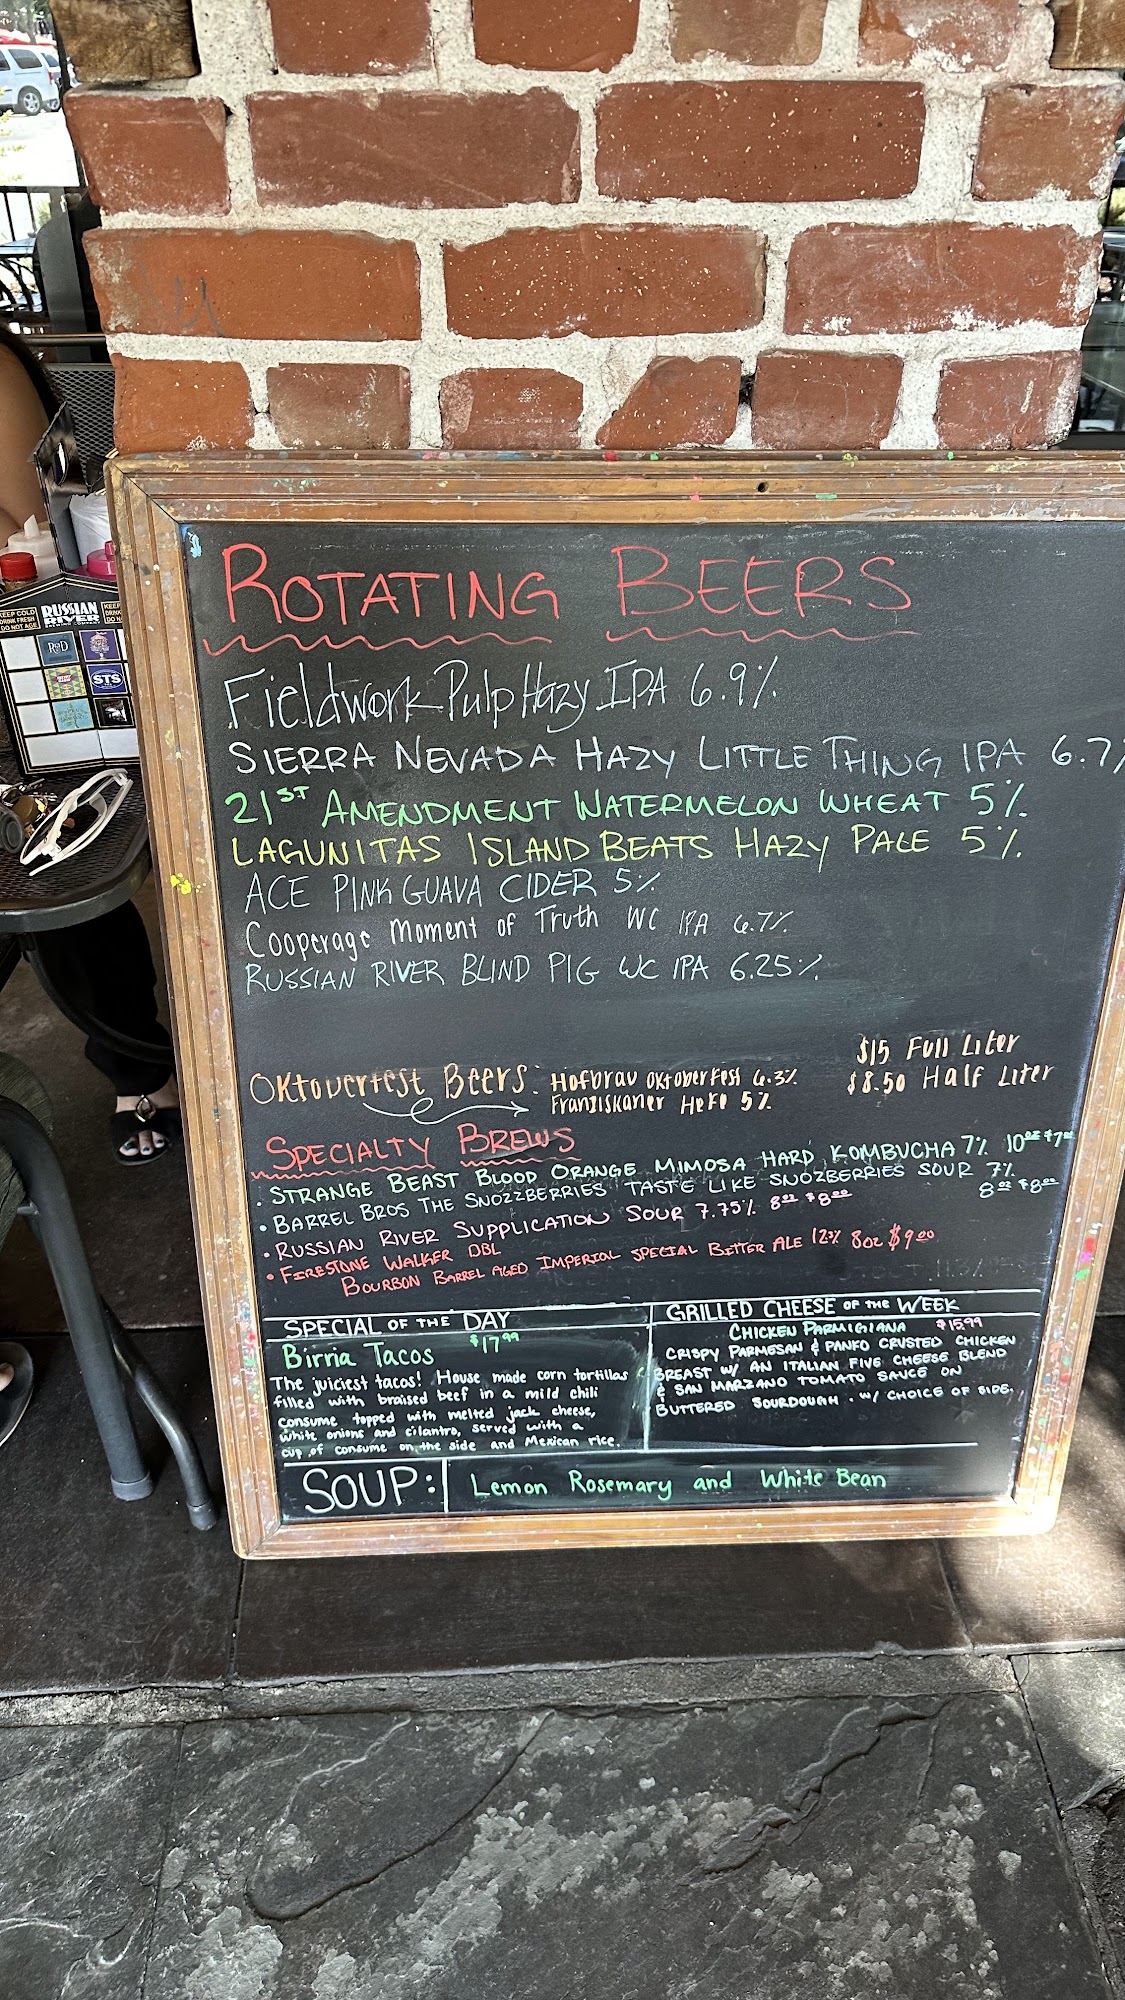 KEEP COLD
DRINK FRESH
DO NOT AGE
RUSSIAN
RIVER
BREWING COMPANY
KEEP
R&D
STS
ROTATING BEERS
Fieldwork Pulp Hazy IPA 6.9%
SIERRA NEVADA HAZY LITTLE THING IPA 6.7%
21ST AMENDMENT WATERMELON WHEAT 5%
LAGUNITAS ISLAND BEATS HAZY PALE 5%
ACE PINK GUAVA CIDER 5%
Cooperage Moment of Truth WC IPA 6.7%
RUSSIAN RIVER BLIND PIG WC IPA 6.25%
$15 Full Liter
Oktoberfest Beers: Hofbrau Oktoberfest 6.3% $8.50 Half Liter
Franziskaner Hefe 5%
SPECIALTY BREWS
• STRANGE BEAST BLOOD ORANGE MIMOSA HARD KOMBUCHA 7% 10oz $7.00
• BARREL BROS THE SNOZZBERRIES TASTE LIKE SNOZBERRIES SOUR 7%
8oz $8.00
• RUSSIAN RIVER SUPPLICATION SOUR 7.75% 8oz $8.00
• FIRESTONE WALKER DBL
BOURBON BARREL AGED IMPERIAL SPECIAL BITTER ALE 12% 8oz $9.00
SPECIAL OF THE DAY
$17.99
Birria Tacos
The juiciest tacos! House made corn tortillas
filled with braised beef in a mild chili
consume topped with melted jack cheese,
white onions and cilantro, served with a
cup of consume on the side and Mexican rice.
GRILLED CHEESE OF THE WEEK
CHICKEN PARMIGIANA $15.99
CRISPY PARMESAN & PANKO CRUSTED CHICKEN
BREAST W/ AN ITALIAN FIVE CHEESE BLEND
& SAN MARZANO TOMATO SAUCE ON
BUTTERED SOURDOUGH. W/ CHOICE OF SIDE.
SOUP: Lemon Rosemary and White Bean